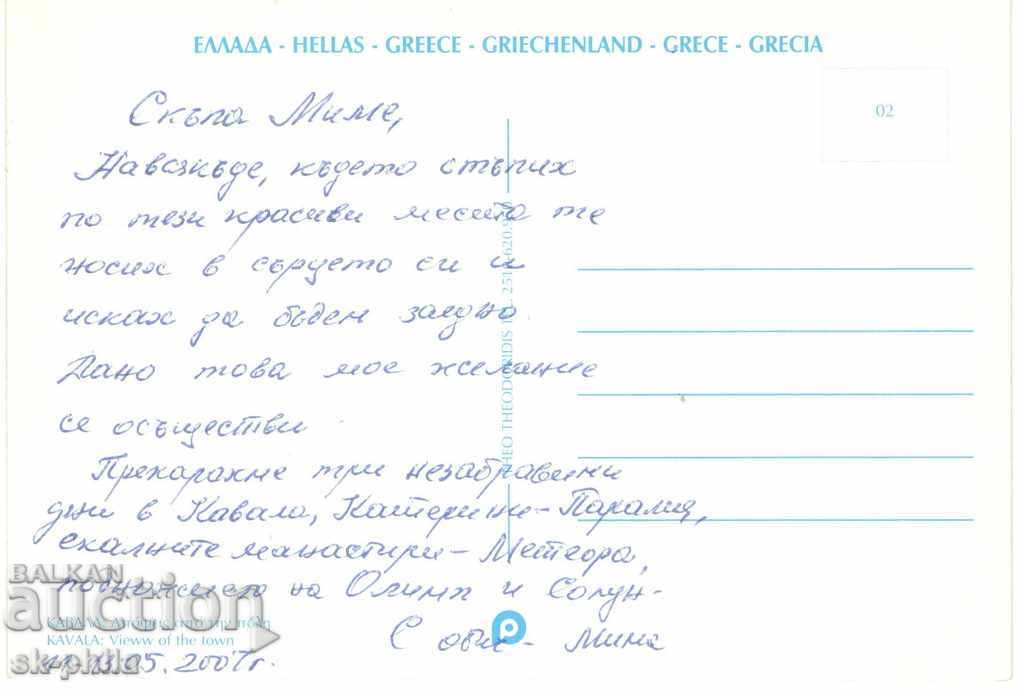 ΕΛΛΑΔΑ - HELLAS - GREECE - GRIECHENLAND - GRECE - GRECIA
02
Скъпа Миме,
Навсякъде, където стъпих
по тези красиви места те
носих в сърцето си и
исках да бъдем заедно.
Дано това мое желание
се осъществи.
Прекарахме три незабравими
дни в Кавала, Катерини - Паралия,
скалните манастири - Метеора,
подножието на Олимп и Солун.
С обич - Мима
THEO THEODORIDIS
ΚΑΒΑΛΑ: Απόψεις από την πόλη
KAVALA: Vieww of the town
05.2007 г.
BALKAN
auction
sk-phila